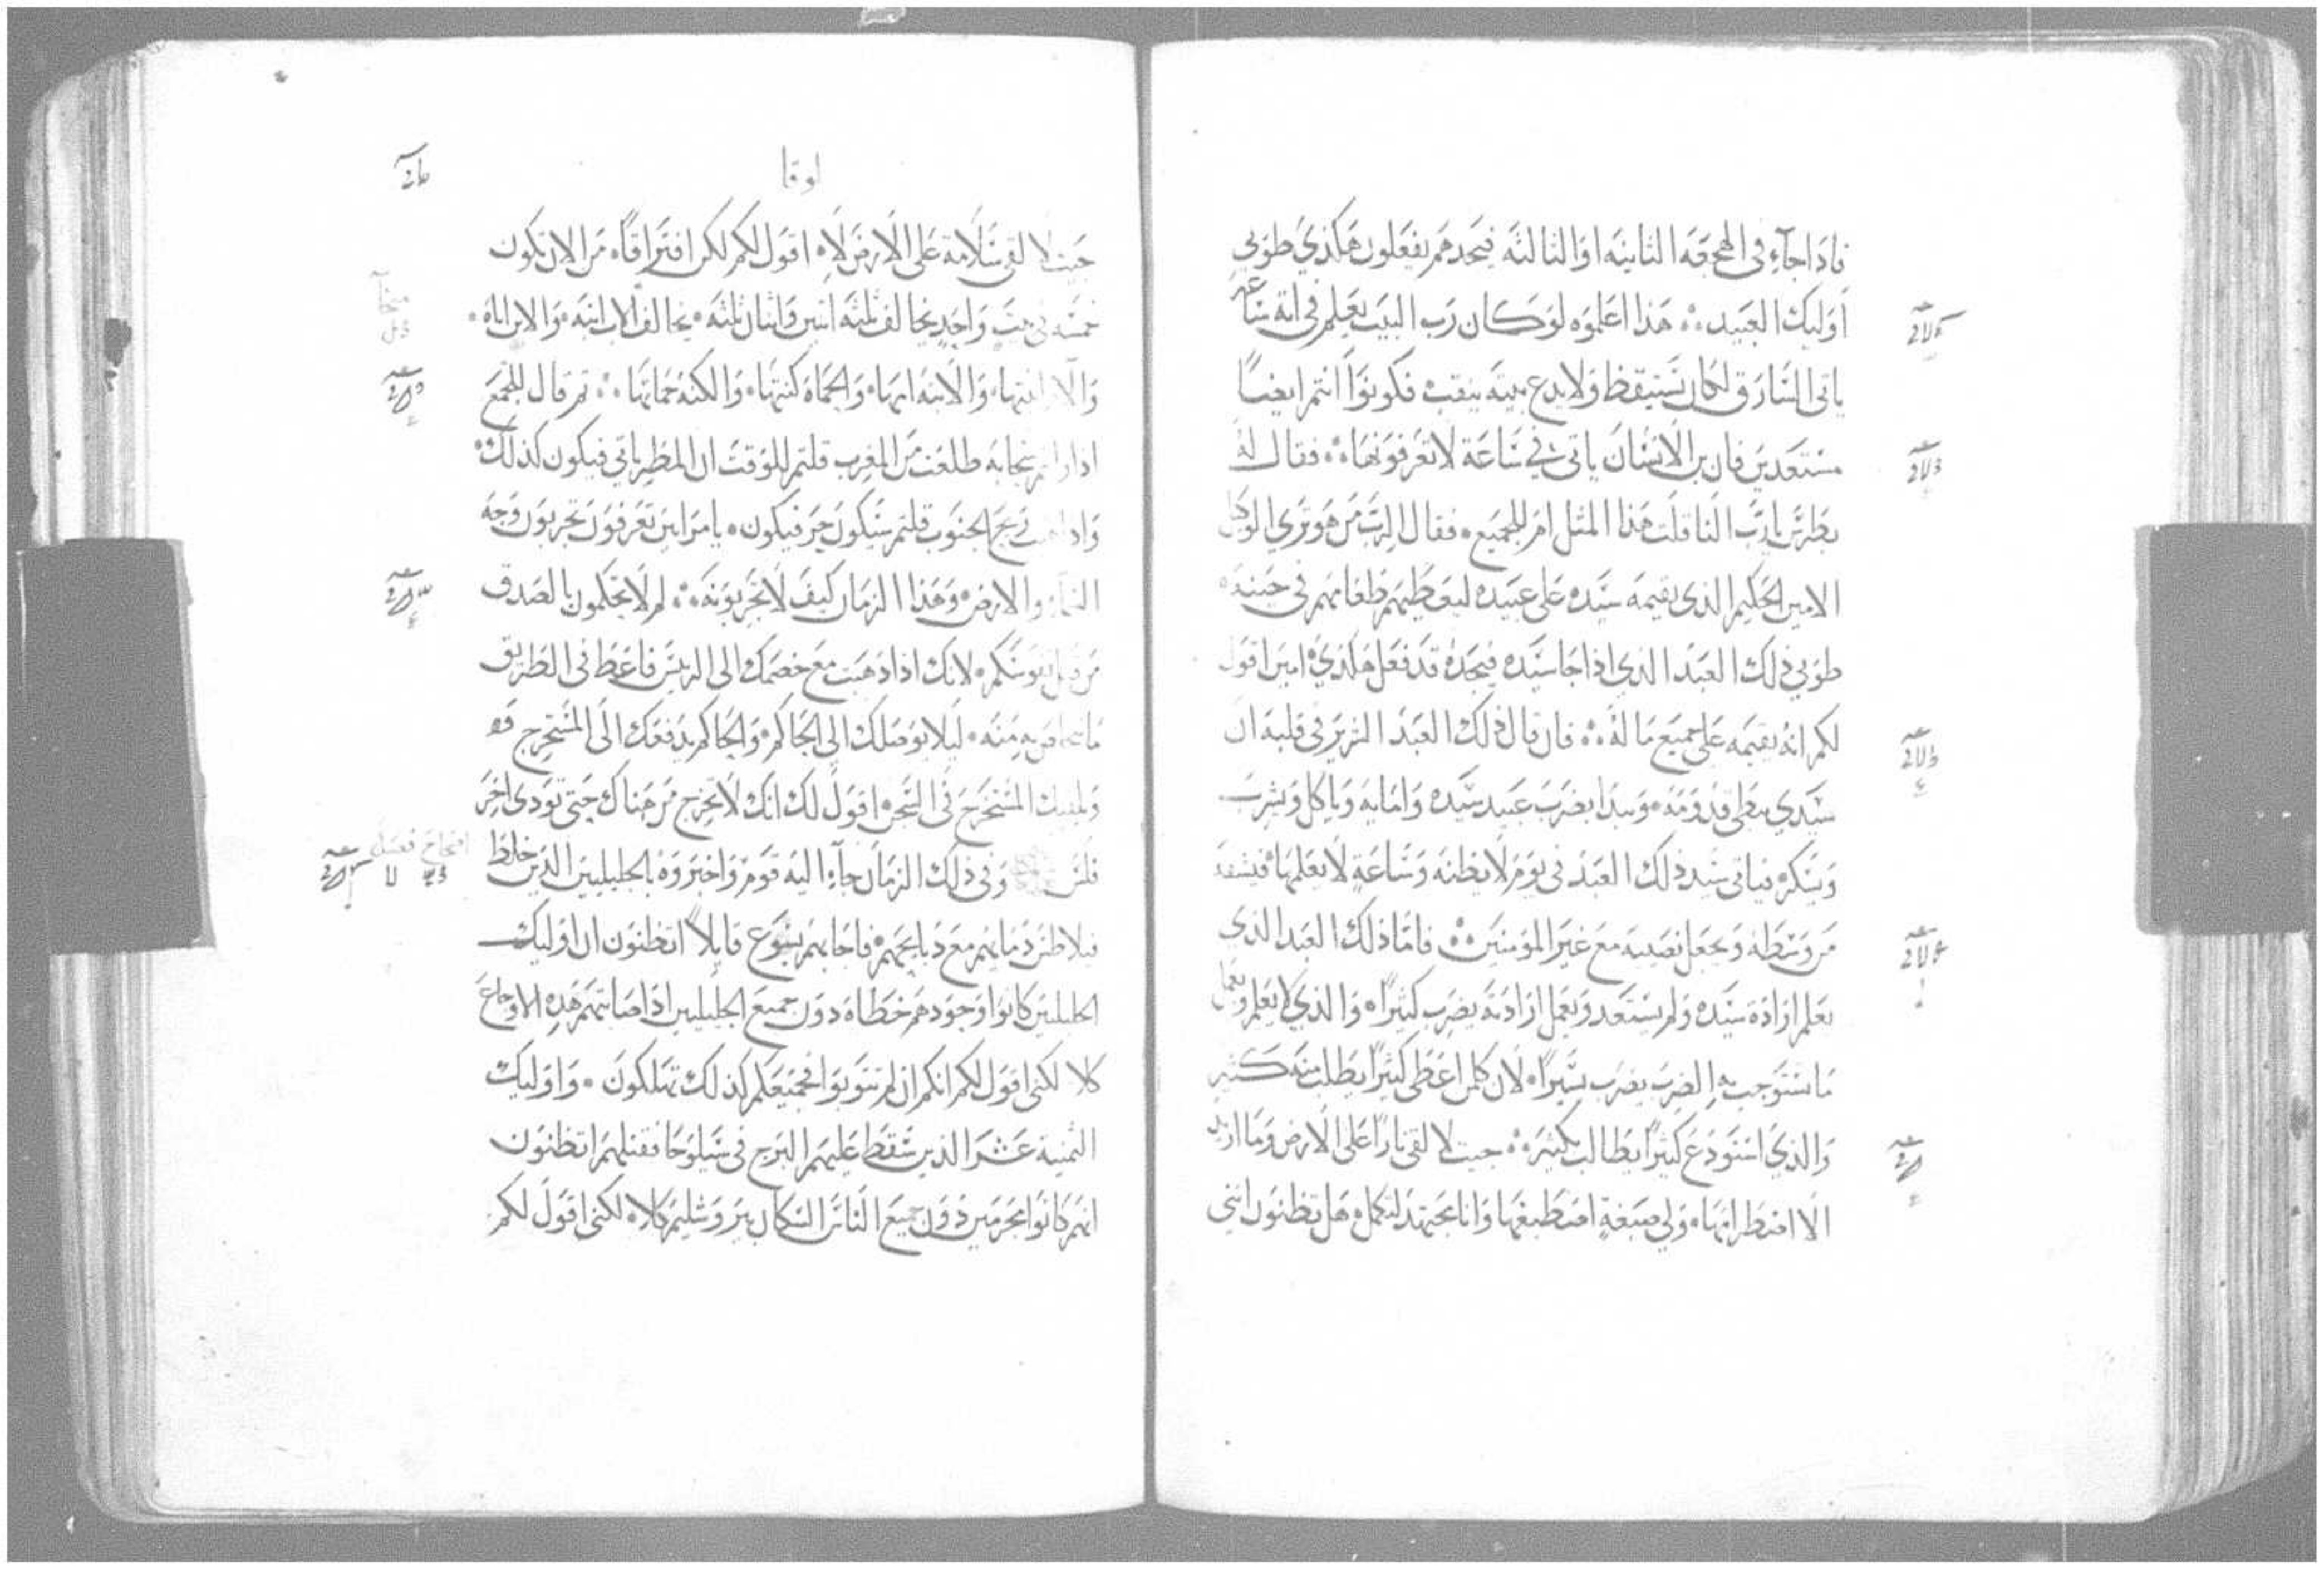 فاذا جآء في الهجعة الثانيه او الثالثه فيجدهم يفعلون هكذي طوبي
اوليك العبيد هذا اعلموه لو كان رب البيت يعلم في اية ساعه
ياتي السارق لكان يستيقظ ولا يدع بيته ينقب فكونوا انتم ايضا
مستعدين فان بن الانسان ياتي في ساعة لا تعرفونها فقال له
بطرس يا رب النا قلت هذا المثل ام للجميع فقال الرب من هو تري الوكيل
الامين الحكيم الذي يقيمه سيده علي عبيده ليعطيهم طعامهم في حينه
طوبي ذلك العبد الذي اذا جا سيده فيجده قد فعل هكذي امين اقول
لكم انه يقيمه علي جميع ماله فان قال ذلك العبد الشرير في قلبه ان
سيدي يبطي قدومه ويبدا يضرب عبيد سيده وامايه وياكل ويشرب
ويسكر فياتي سيد ذلك العبد في يوم لا يظنه وساعة لا يعلمها فيشقه
من وسطه ويجعل نصيبه مع غير المومنين فاما ذلك العبد الذي
يعلم ارادة سيده ولم يستعد ويعمل ارادته يضرب كثيرا والذي لا يعلم ويعمل
ما يستوجب به الضرب يضرب يسيرا لان كلمن اعطي كثيرا يطلب منه كثير
والذي استودع كثيرا يطالب بكثير جيت لالقي نارا علي الارض وما اريد
الا اضطرامها ولي صبغة اصطبغها وانا مجتهد لتكمل هل تظنون انني
لوقا
جيت لالقي سلامة علي الارض لا اقول لكم لكن افتراقا من الان يكون
خمسه في بيت واحد يخالف ثلثه اثنين واثنان ثلثه يخالف الاب ابنه والابن اباه
والام ابنتها والابنه امها والحماه كنتها والكنه حماتها ثم قال للجمع
اذا رايتم سحابه طلعت من المغرب قلتم للوقت ان المطر ياتي فيكون كذلك
واذا هبت ريح الجنوب قلتم سيكون حر فيكون يا مرايين تعرفون تجربون وجه
السمآء والارض وهذا الزمان كيف لا تجربونه لم لا تحكمون بالصدق
من قبل نفوسكم لانك اذا ذهبت مع خصمك الي الريس فاعط في الطريق
ما تخلص به منه ليلا يوصلك الي الحاكم والحاكم يدفعك الي المستخرج
ويلقيك المستخرج في السجن اقول لك انك لا تخرج من هناك حتي تودي اخر
فلس وفي ذلك الزمان جآء اليه قوم واخبروه بالجليليين الذين خلط
فيلاطس دمايهم مع دبايحهم فاجابهم يسوع قايلا اتظنون ان اوليك
الجليليين كانوا وحدهم خطاه دون جميع الجليليين اذ اصابتهم هذه الاوجاع
كلا لكني اقول لكم انكم ان لم تتوبوا فجميعكم كذلك تهلكون واوليك
الثمنية عشر الذين سقط عليهم البرج في سيلوحا فقتلهم اتظنون
انهم كانوا مجرمين دون جميع الناس السكان بيروشليم كلا لكني اقول لكم